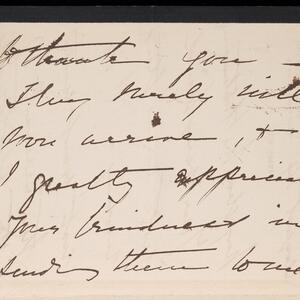 thank you —
They surely will
soon arrive, &
I greatly apprecia
your kindness in
sending them to me